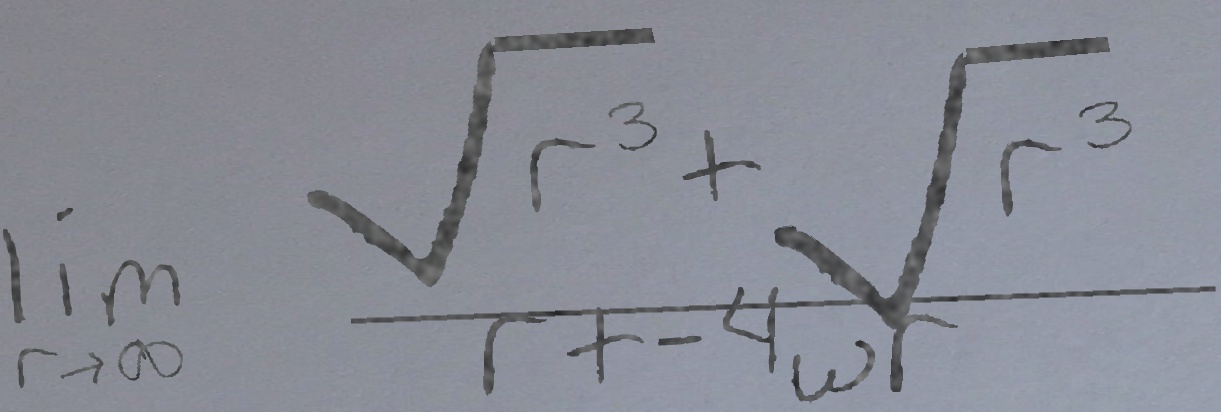 \lim_{r \to \infty} \frac{\sqrt{r^3} + \sqrt{r^3}}{r + -4\omega r}